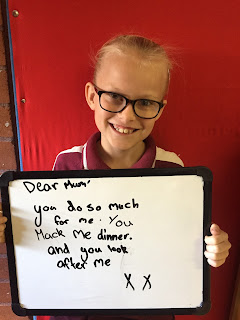 Dear Mum'
you do so much
for me. You
Mack Me dinner.
and you look
after me
X X